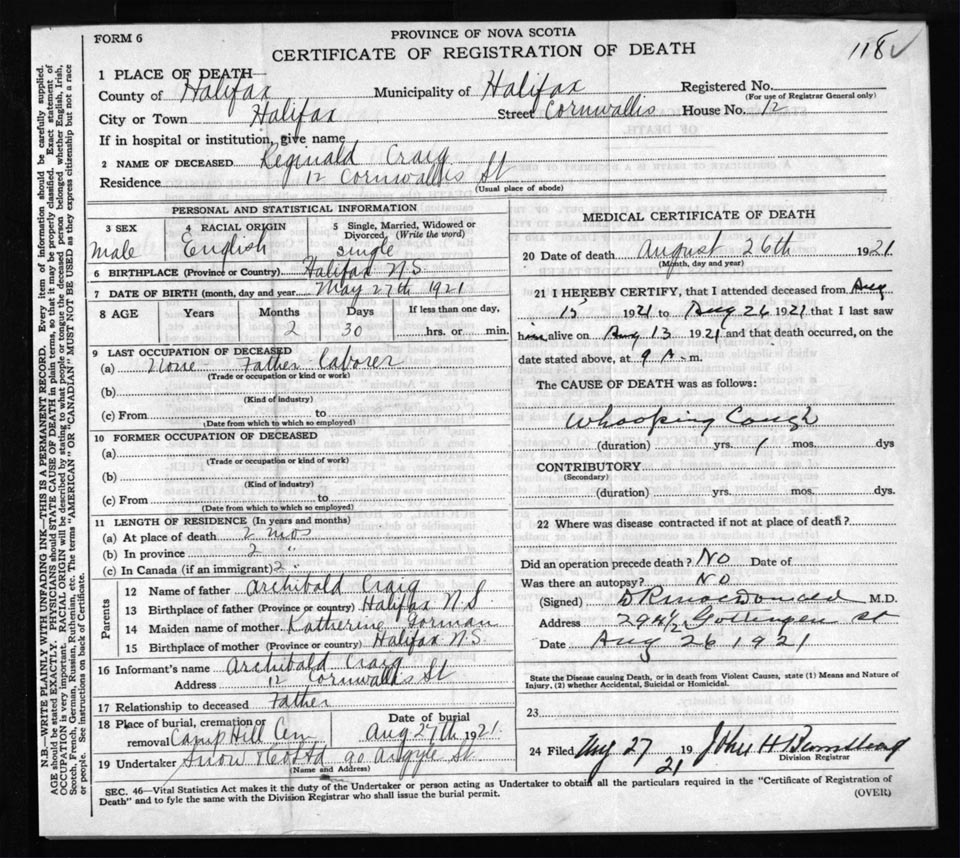 FORM 6
PROVINCE OF NOVA SCOTIA
CERTIFICATE OF REGISTRATION OF DEATH
118
1 PLACE OF DEATH—
County of Halifax Municipality of Halifax Registered No.
(For use of Registrar General only)
City or Town Halifax Street Cornwallis House No. 12
If in hospital or institution, give name
2 NAME OF DECEASED Reginald Craig
Residence 12 Cornwallis St
(Usual place of abode)
PERSONAL AND STATISTICAL INFORMATION
3 SEX 4 RACIAL ORIGIN 5 Single, Married, Widowed or Divorced, (Write the word)
Male English Single
6 BIRTHPLACE (Province or Country) Halifax N.S.
7 DATE OF BIRTH (month, day and year) May 27th 1921
8 AGE Years Months Days If less than one day,
2 30 hrs. or min.
9 LAST OCCUPATION OF DECEASED
(a) None Father Laborer
(Trade or occupation or kind or work)
(b)
(Kind of industry)
(c) From to
(Date from which to which so employed)
10 FORMER OCCUPATION OF DECEASED
(a)
(Trade or occupation or kind of work)
(b)
(Kind of industry)
(c) From to
(Date from which to which so employed)
11 LENGTH OF RESIDENCE (In years and months)
(a) At place of death 2 mos
(b) In province 2 "
(c) In Canada (if an immigrant) 2 "
Parents
12 Name of father Archibald Craig
13 Birthplace of father (Province or country) Halifax N.S.
14 Maiden name of mother Katherine Gorman
15 Birthplace of mother (Province or country) Halifax N.S.
16 Informant's name Archibald Craig
Address 12 Cornwallis St
17 Relationship to deceased Father
18 Place of burial, cremation or removal Camp Hill Cem Date of burial Aug 27th 1921
19 Undertaker Snow & Co Ltd 90 Argyle St
(Name and Address)
MEDICAL CERTIFICATE OF DEATH
20 Date of death August 26th 1921
(Month, day and year)
21 I HEREBY CERTIFY, that I attended deceased from Aug
15 1921 to Aug 26 1921 that I last saw
him alive on Aug 13 1921 and that death occurred, on the
date stated above, at 9 A.m.
The CAUSE OF DEATH was as follows:
Whooping Cough
(duration) yrs. 1 mos. dys
CONTRIBUTORY
(Secondary)
(duration) yrs. mos. dys.
22 Where was disease contracted if not at place of death?
Did an operation precede death? No Date of
Was there an autopsy? No
(Signed) D R MacDonald M.D.
Address Gottingen St
Date Aug 26 1921
State the Disease causing Death, or in death from Violent Causes, state (1) Means and Nature of
Injury, (2) whether Accidental, Suicidal or Homicidal.
23
24 Filed Aug 27 1921 John H
Division Registrar
SEC. 46—Vital Statistics Act makes it the duty of the Undertaker or person acting as Undertaker to obtain all the particulars required in the "Certificate of Registration of
Death" and to fyle the same with the Division Registrar who shall issue the burial permit.
(OVER)
N.B.—WRITE PLAINLY WITH UNFADING INK—THIS IS A PERMANENT RECORD. Every item of information should be carefully supplied.
AGE should be stated EXACTLY. PHYSICIANS should STATE CAUSE OF DEATH in plain terms, so that it may be properly classified. Exact statement of
OCCUPATION is very important. RACIAL ORIGIN will be described by stating to what people or tongue the deceased person belonged whether English, Irish,
Scotch, French, German, Russian, Ruthenian, etc. The terms "AMERICAN" OR "CANADIAN" MUST NOT BE USED as they express citizenship but not a race
or people. See instructions on back of Certificate.